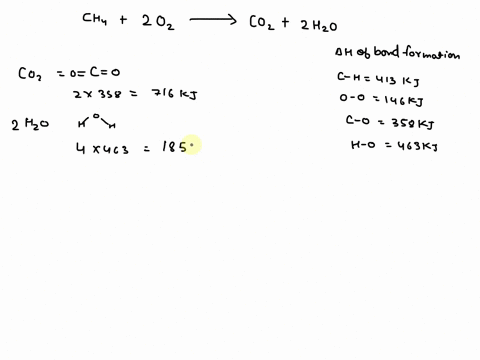 CH4 + 2O2 ⟶ CO2 + 2H2O
ΔH of bond formation
C-H = 413 KJ
O-O = 146 KJ
C-O = 358 KJ
H-O = 463 KJ
CO2 = O=C=O
2 × 358 = 716 KJ
2 H2O H O H
4 × 463 = 185